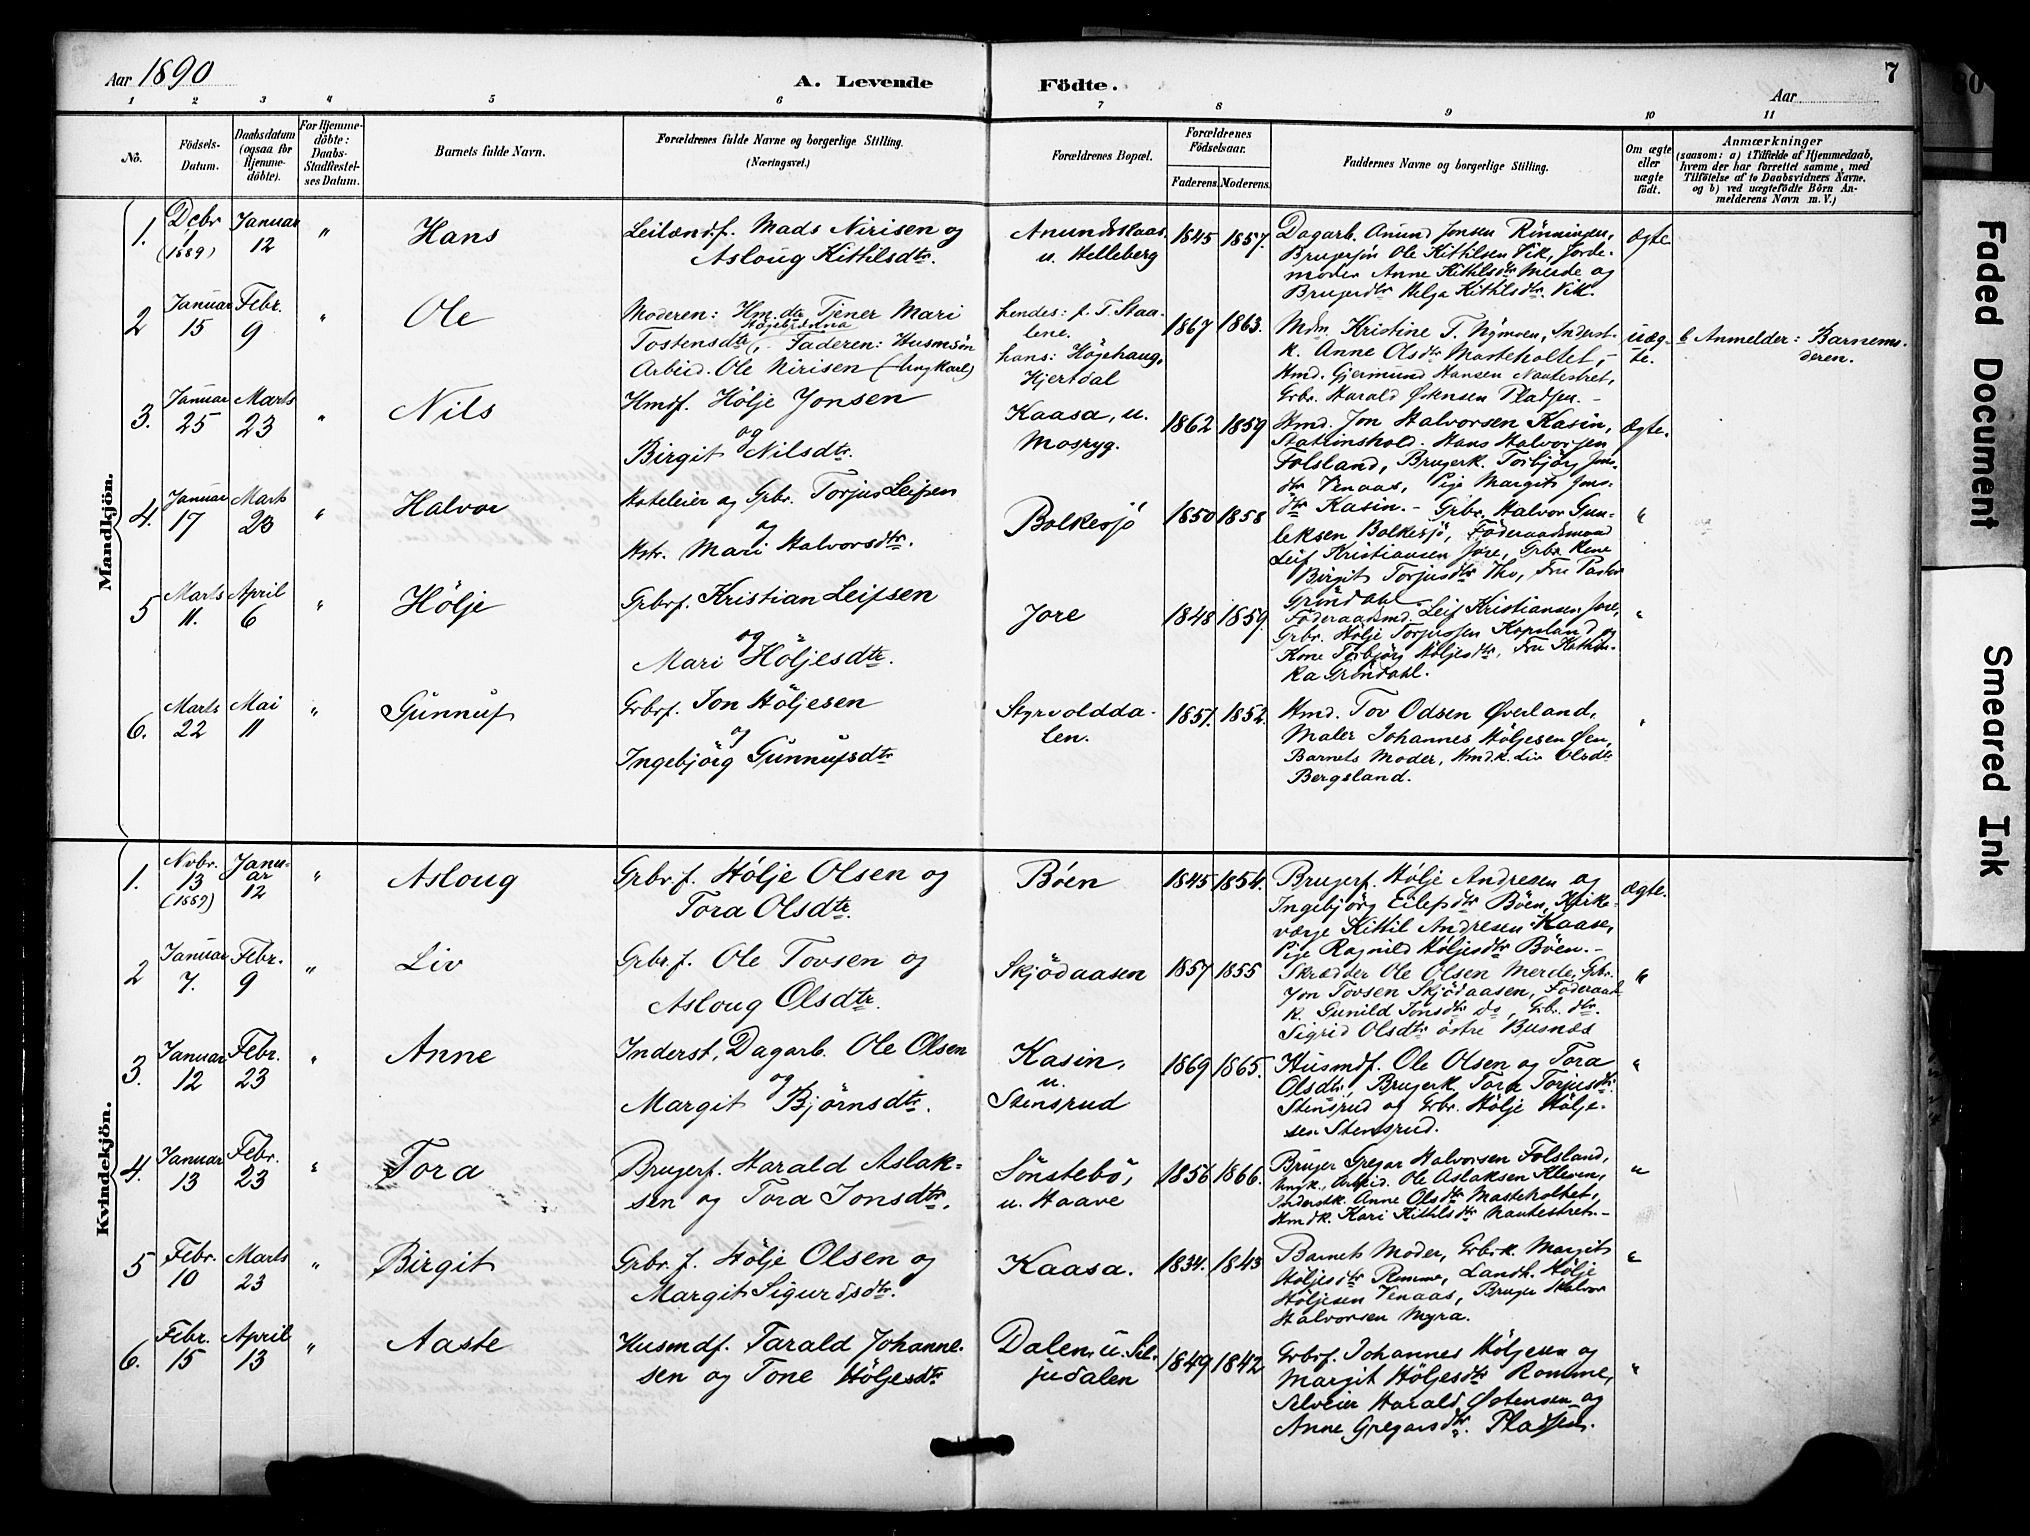 Aar 1890
A. Levende
Födte.
Aar
7
1 2 3 4 5 6 7 8 9 10 11
No.
Födsels-
Datum.
Daabsdatum
(ogsaa for
Hjemme-
döbte).
For Hjemme-
döbte:
Daabs-
Stadfæstel-
ses Datum.
Barnets fulde Navn.
Forældrenes fulde Navne og borgerlige Stilling.
(Næringsvei.)
Forældrenes Bopæl.
Forældrenes
Födselsaar.
Faderens. Moderens.
Faddernes Navne og borgerlige Stilling.
Om ægte
eller
uægte
födt.
Anmærkninger
(saasom: a) i Tilfælde af Hjemmedaab,
hvem der har forrettet samme, med
Tilföielse af to Daabsvidners Navne.
og b) ved uægtefödte Börn An-
melderens Navn m. V.)
Mandkjön.
1.
Debr
1
(1889)
Januar
12
"
Hans
Leilændf. Mads Nirisen og
Asloug Kittilsdtr.
Anundskaas.
u. Helleberg
1845 1857.
Dagarb. Anund Jonsen Rönningen,
Brugersön Ole Kittilsen Vik, Jorde-
moder Anne Kittilsdtr Merde og
Brugerdtr Helga Kittilsdtr. Vik.
Ægte
2
Januar
15
Febr.
9
"
Ole
Moderen: Hm.dtr Tjener Mari
Tostensdtr, Faderen: Husmsön
Arbeid. Ole Nirisen (Ungkarl)
hendes: f. T. Staa-
lene.
hans: Höjehaug,
Hjertdal
1867 1863.
Mdm. Kristine T. Nymoen, Inderst-
k. Anne Olsdtr Masteholtet, -
Hmd. Gjermund Hansen Nautestret,
Grbr. Harald Östensen Pladsen. -
uæg-
te.
b Anmelder: Barnemo-
deren.
3.
Januar
25
Marts
23
"
Nils
Hmdf. Hölje Jonsen
og
Birgit Nilsdtr.
Kaasa, u.
Mosryg.
1862 1859
Hmd. Jon Halvorsen Kasin,
Stationshold. Hans Halvorsen
Folsland, Brugerk. Torbjörg Jons-
dtr Venaas, Pige Margit Jons-
dtr Kasin. -
Ægte.
4.
Januar
17
Marts
23
"
Halvor
Hoteleier og Grbr. Torjus Leifsen
og
Hstr. Mari Halvorsdtr.
Bolkesjö
1850 1858
Grbr. Halvor Gun-
leksen Bolkesjö, Föderaadsmand
Leif Kristiansen Jore, Grbr. Kone
Birgit Torjusdtr Tho, Fru Pastor
Gröndahl
"
5
Marts
11.
April
6
"
Hölje
Grbrf. Kristian Leifsen
og
Mari Höljesdtr.
Jore
1848 1859.
Föderaadsmd. Leif Kristiansen Jore,
Grbr. Hölje Torjussen Kopsland og
Kone Torbjörg Höljesdtr, Fru Kathin-
ka Gröndahl.
"
6.
Marts
22
Mai
11
"
Gunnuf
Grbrf. Jon Höljesen
og
Ingebjörg Gunnufsdtr
Styrvoldda-
len.
1851. 1852.
Hmd. Tov Odsen Överland,
Maler Johannes Höljesen Öen,
Barnets Moder, Hmdk. Liv Olsdtr
Bergsland.
"
Kvindekjön.
1.
Nvbr.
13
(1889)
Janu-
ar
12
"
Asloug
Grbr.f. Hölje Olsen og
Tora Olsdtr.
Böen
1845 1854.
Brugerf. Hölje Andresen og
Ingebjörg Eilefsdtr Böen, Kirke-
værge Kittil Andresen Kaase,
Pige Ragnild Höljesdtr Böen. -
Ægte.
2
Januar
7.
Febr.
9
"
Liv
Grbr.f. Ole Tovsen og
Asloug Olsdtr.
Skjödaasen
1857 1855
Skrædder Ole Olsen Merde, Grbr.
Jon Tovsen Skjödaasen, Föderaads
k. Gunild Jonsdtr do, Grb. dtr.
Sigrid Olsdtr östre Busnæs
"
3.
Januar
12
Febr.
23
"
Anne
Inderst, Dagarb. Ole Olsen
og
Margit Björnsdtr.
Kasin,
u.
Stensrud
1869 1865.
Husmdf. Ole Olsen og Tora
Olsdtr, Brugerk. Tora Torjusdtr.
Stensrud og Grbr. Hölje Hölje-
sen Stensrud.
"
4.
Januar
13
Febr.
23
"
Tora
Brugerf. Harald Aslak-
sen og Tora Jonsdtr.
Sönstebö,
u. Haave
1856 1866.
Bruger Gregar Halvorsen Folsland,
Ungk., Arbeid. Ole Aslaksen Kleven,
Inderstk. Anne Olsdtr Masteholtet,
Hmdk. Kari Kittilsdtr Nautestret. -
"
5
Febr.
10
Marts
23
"
Birgit
Grbr. f. Hölje Olsen og
Margit Sigurdsdtr.
Kaasa.
1834. 1843
Barnets Moder, Grbrk. Margit
Höljesdtr Romme, Landh. Hölje
Höljesen Venaas, Bruger Halvor
Halvorsen Myra.
"
6.
Febr.
15
April
13
"
Aaste
Husmdf. Tarald Johanne-
sen og Tone Höljesdtr
Dalen, u. Sil-
judalen
1849 1842
Grbrf. Johannes Höljesen og
Margit Höljesdtr Romme,
Selveier Harald Östensen og
Anne Gregarsdtr. Pladsen.
"
Faded Document
Smeared Ink